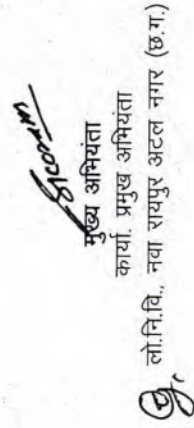 मुख्य अभियंता
कार्या. प्रमुख अभियंता
लो.नि.वि., नवा रायपुर अटल नगर (छ.ग.)